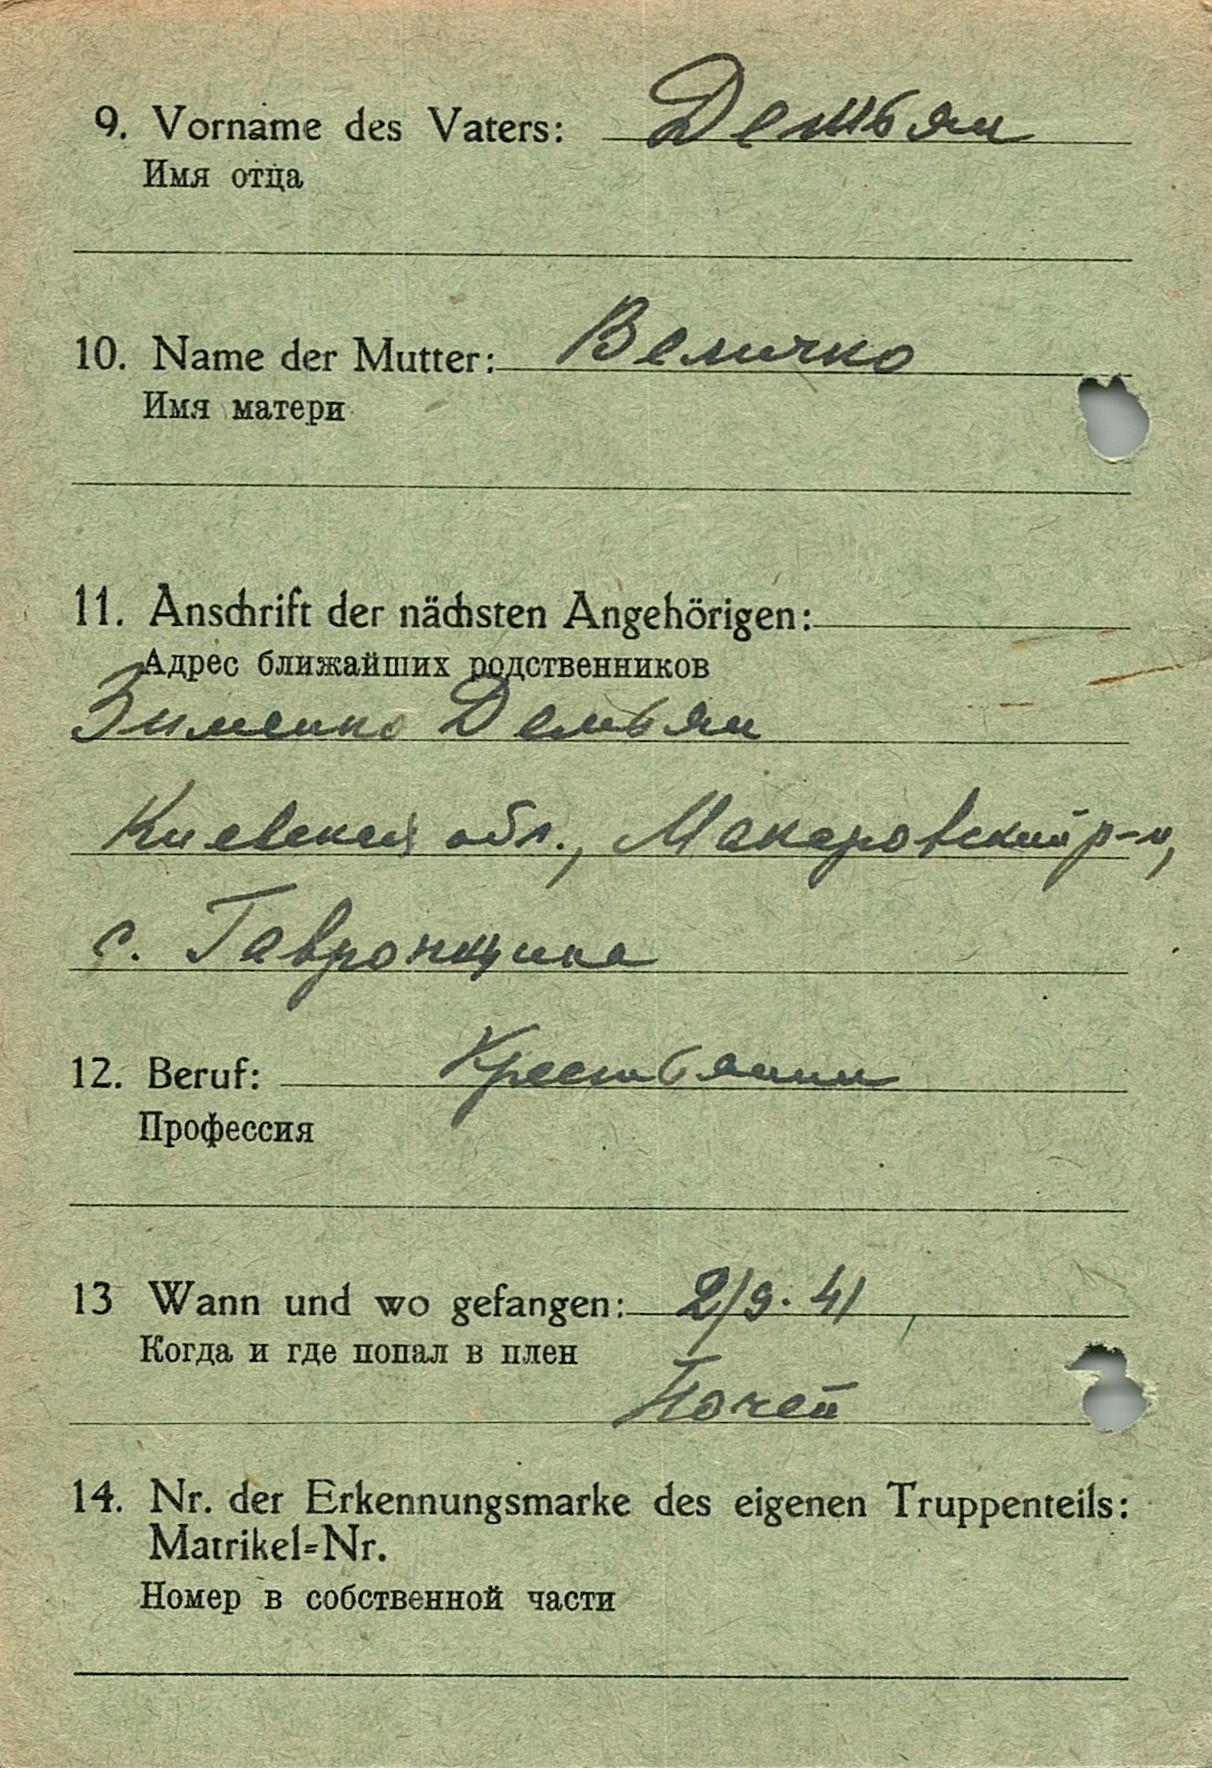 9. Vorname des Vaters: Демьян
Имя отца
10. Name der Mutter: Величко
Имя матери
11. Anschrift der nächsten Angehörigen:
Адрес ближайших родственников
Зименко Демьян
Киевская обл., Макаровский р-н,
с. Гавронщина
12. Beruf: Крестьянин
Профессия
13 Wann und wo gefangen: 2/9. 41
Когда и где попал в плен
14. Nr. der Erkennungsmarke des eigenen Truppenteils:
Matrikel=Nr.
Номер в собственной части